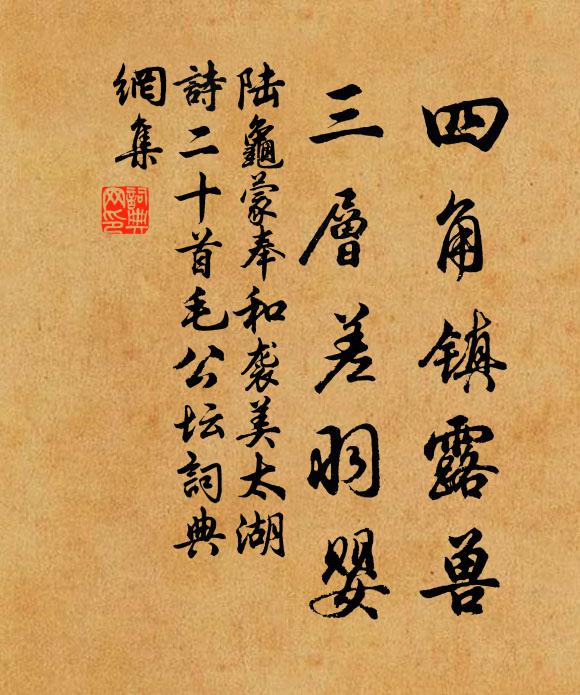 四角镇露兽
三層差羽嬰
陆龜蒙奉和袭美太湖
詩二十首毛公坛詞典
網集
詞典
网印